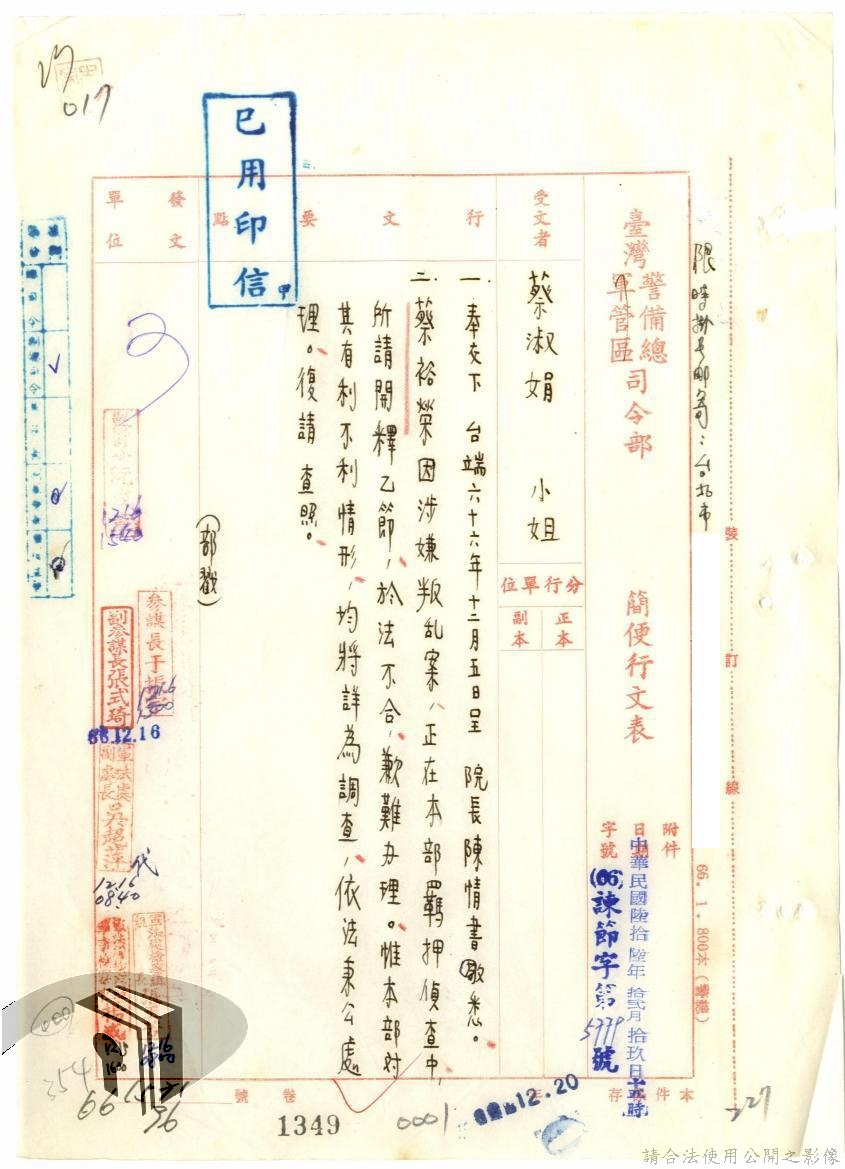 限時掛號郵寄：台北市
66.1.800本
臺灣警備總司令部
軍管區
簡便行文表
附件
日期
字號
中華民國陸拾陸年拾貳月拾玖日十五時
(66)諫節字第5779號
受文者
蔡淑娟 小姐
分行單位
正本
副本
行文要點
一.奉交下 台端六十六年十二月五日呈 院長陳情書敬悉。
二.蔡裕榮因涉嫌叛乱案，正在本部羈押偵查中，
所請開釋乙節，於法不合，歉難办理。惟本部对
其有利不利情形，均將詳為調查，依法秉公處
理。復請 查照。
(部戳)
發文單位
已用印信
甲
參謀長于
副參謀長張式琦
66.12.16
12.16
1540
12.16
0840
代
裝
訂
線
本件
存
年
卷
號
1349
0001
12.20
017
227
354
請合法使用公開之影像